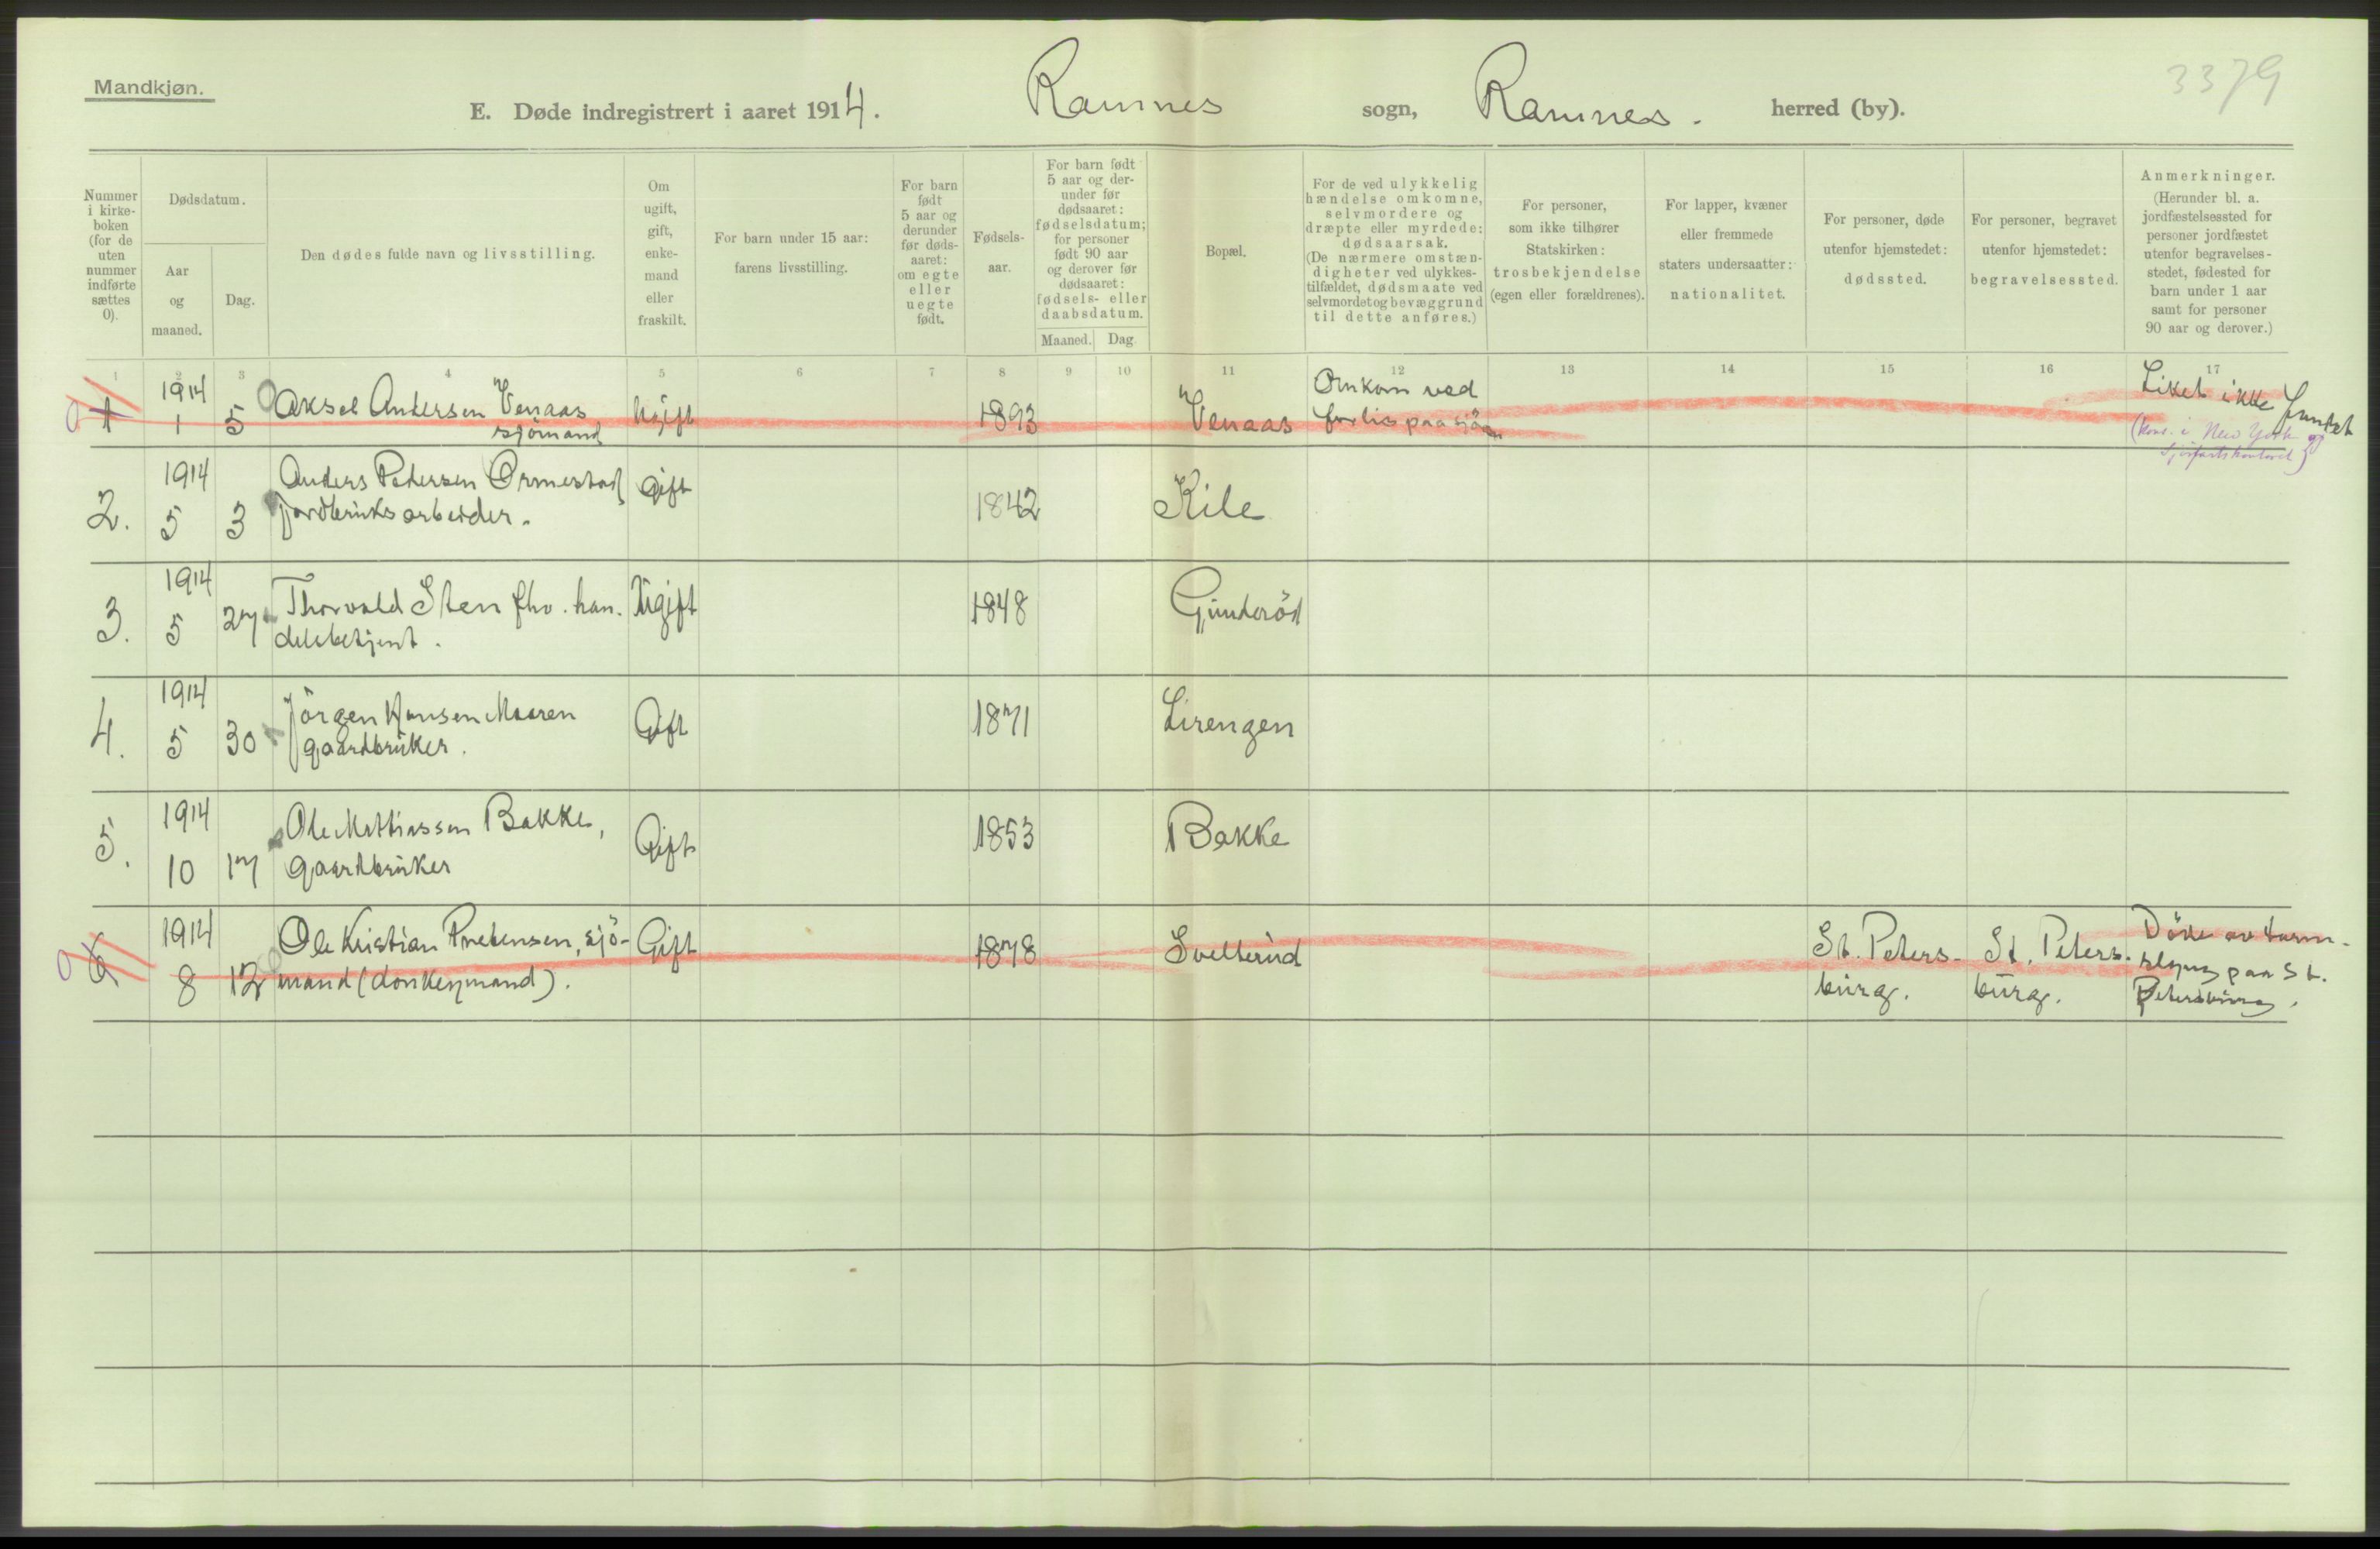 Mandkjøn.
3379
E. Døde indregistrert i aaret 1914. Ramnes sogn, Ramnes. herred (by).
Nummer i kirke-boken (for de uten nummer indførte sættes 0).
Dødsdatum.
Aar og maaned.
Dag.
Den dødes fulde navn og livsstilling.
Om ugift, gift, enke-mand eller fraskilt.
For barn under 15 aar: farens livsstilling.
For barn født 5 aar og derunder før døds-aaret: om egte eller uegte født.
Fødsels-aar.
For barn født 5 aar og der-under før dødsaaret: fødselsdatum; for personer født 90 aar og derover før dødsaaret: fødsels- eller daabsdatum.
Maaned. Dag.
Bopæl.
For de ved ulykkelig hændelse omkomne, selvmordere og dræpte eller myrdede: dødsaarsak. (De nærmere omstæn-digheter ved ulykkes-tilfældet, dødsmaate ved selvmordet og bevæggrund til dette anføres.)
For personer, som ikke tilhører Statskirken: trosbekjendelse (egen eller forældrenes).
For lapper, kvæner eller fremmede staters undersaatter: nationalitet.
For personer, døde utenfor hjemstedet: dødssted.
For personer, begravet utenfor hjemstedet: begravelsessted.
Anmerkninger. (Herunder bl. a. jordfæstelsessted for personer jordfæstet utenfor begravelses-stedet, fødested for barn under 1 aar samt for personer 90 aar og derover.)
1 2 3 4 5 6 7 8 9 10 11 12 13 14 15 16 17
0 1 1914 1 5 Aksel Andersen Venaas Ugift 1893 Venaas Omkom ved Liket ikke funtet
sjömand forlis paa sjöen
2. 1914 5 3 Anders Petersen Ormestad Gift 1842 Kile
jordbruksarbeider.
3. 1914 5 27 Thorvald Sten fhv. han- Ugift 1848 Gunderöd
delsbetjent.
4. 1914 5 30 Jörgen Hansen Maaren Gift 1871 Lirengen
gaardbruker.
5. 1914 10 17 Ole Mathiassen Bakke, Gift 1853 Bakke
gaardbruker
0 6 1914 8 12 Ole Kristian Prebensen, sjö- Gift 1878 Svelterud St. Peters- St. Peters- Döde av
mand (donkeymand). burg. burg. paa St.
Petersburg.